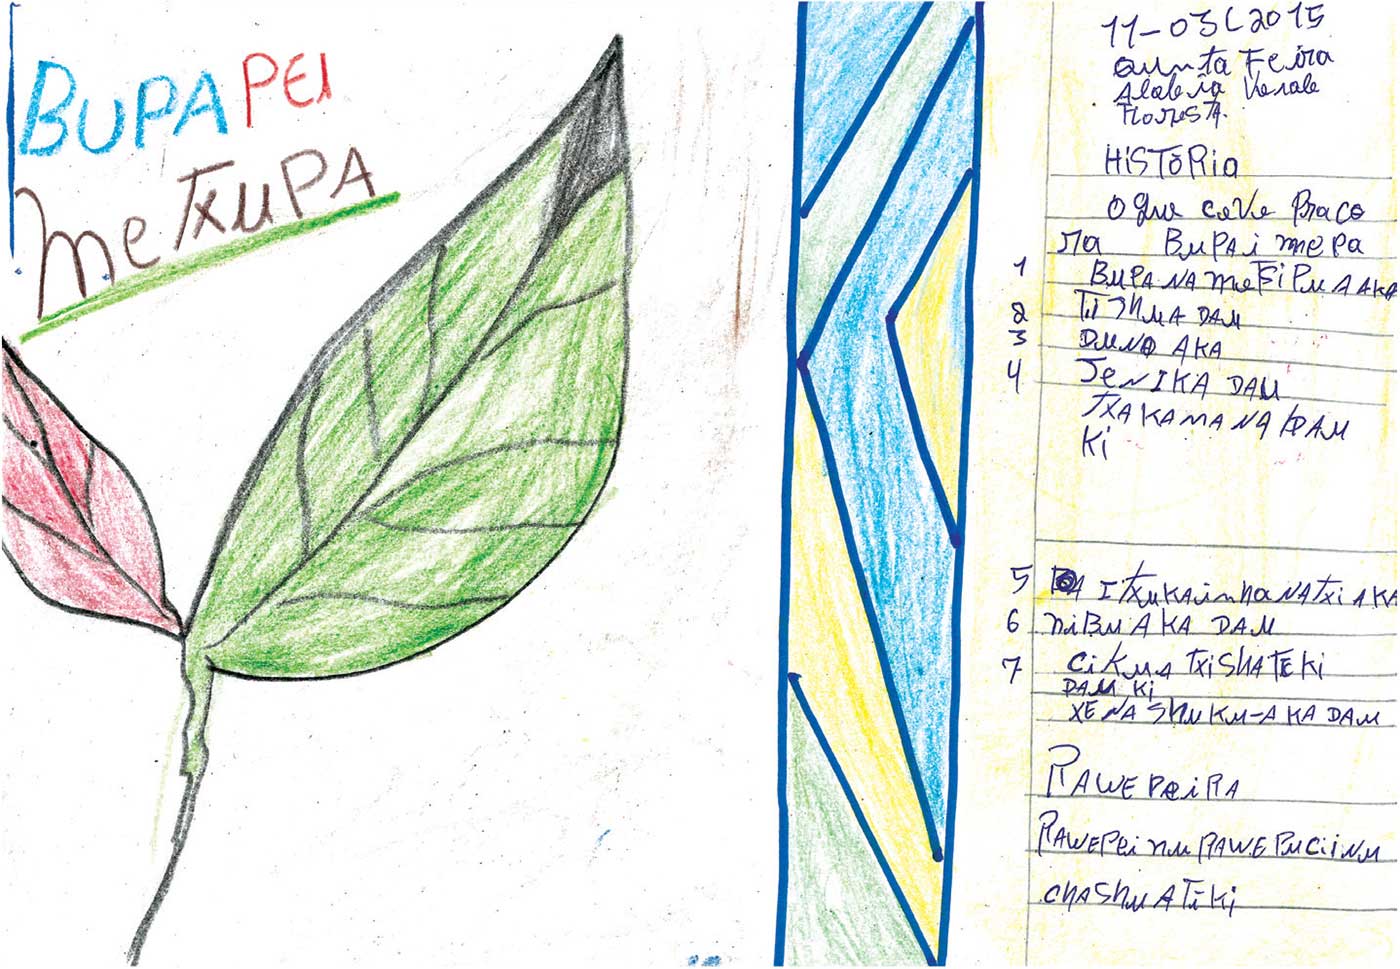 BUPA PEI
meTXUPA
11-03-2015
Quinta Feira
FloresTA.
HiSTÓRia
O que
ra BUPA i mepa
1 BUPA NA
2 Ti ShUA DAM
3 DUNO AKA
4 JeNIKA DAM
TXAKAMANA DAM
Ki
5 ITXUKAinhaNATXi AKA
6 niBU AKA DAM
7 CiKUA TXiShATEKi
DAM Ki
XENA ShUKU-AKA DAM
RAWEPeiRA
RAWEPei nu RAWE PUCiiNU
ChAShUATiKi